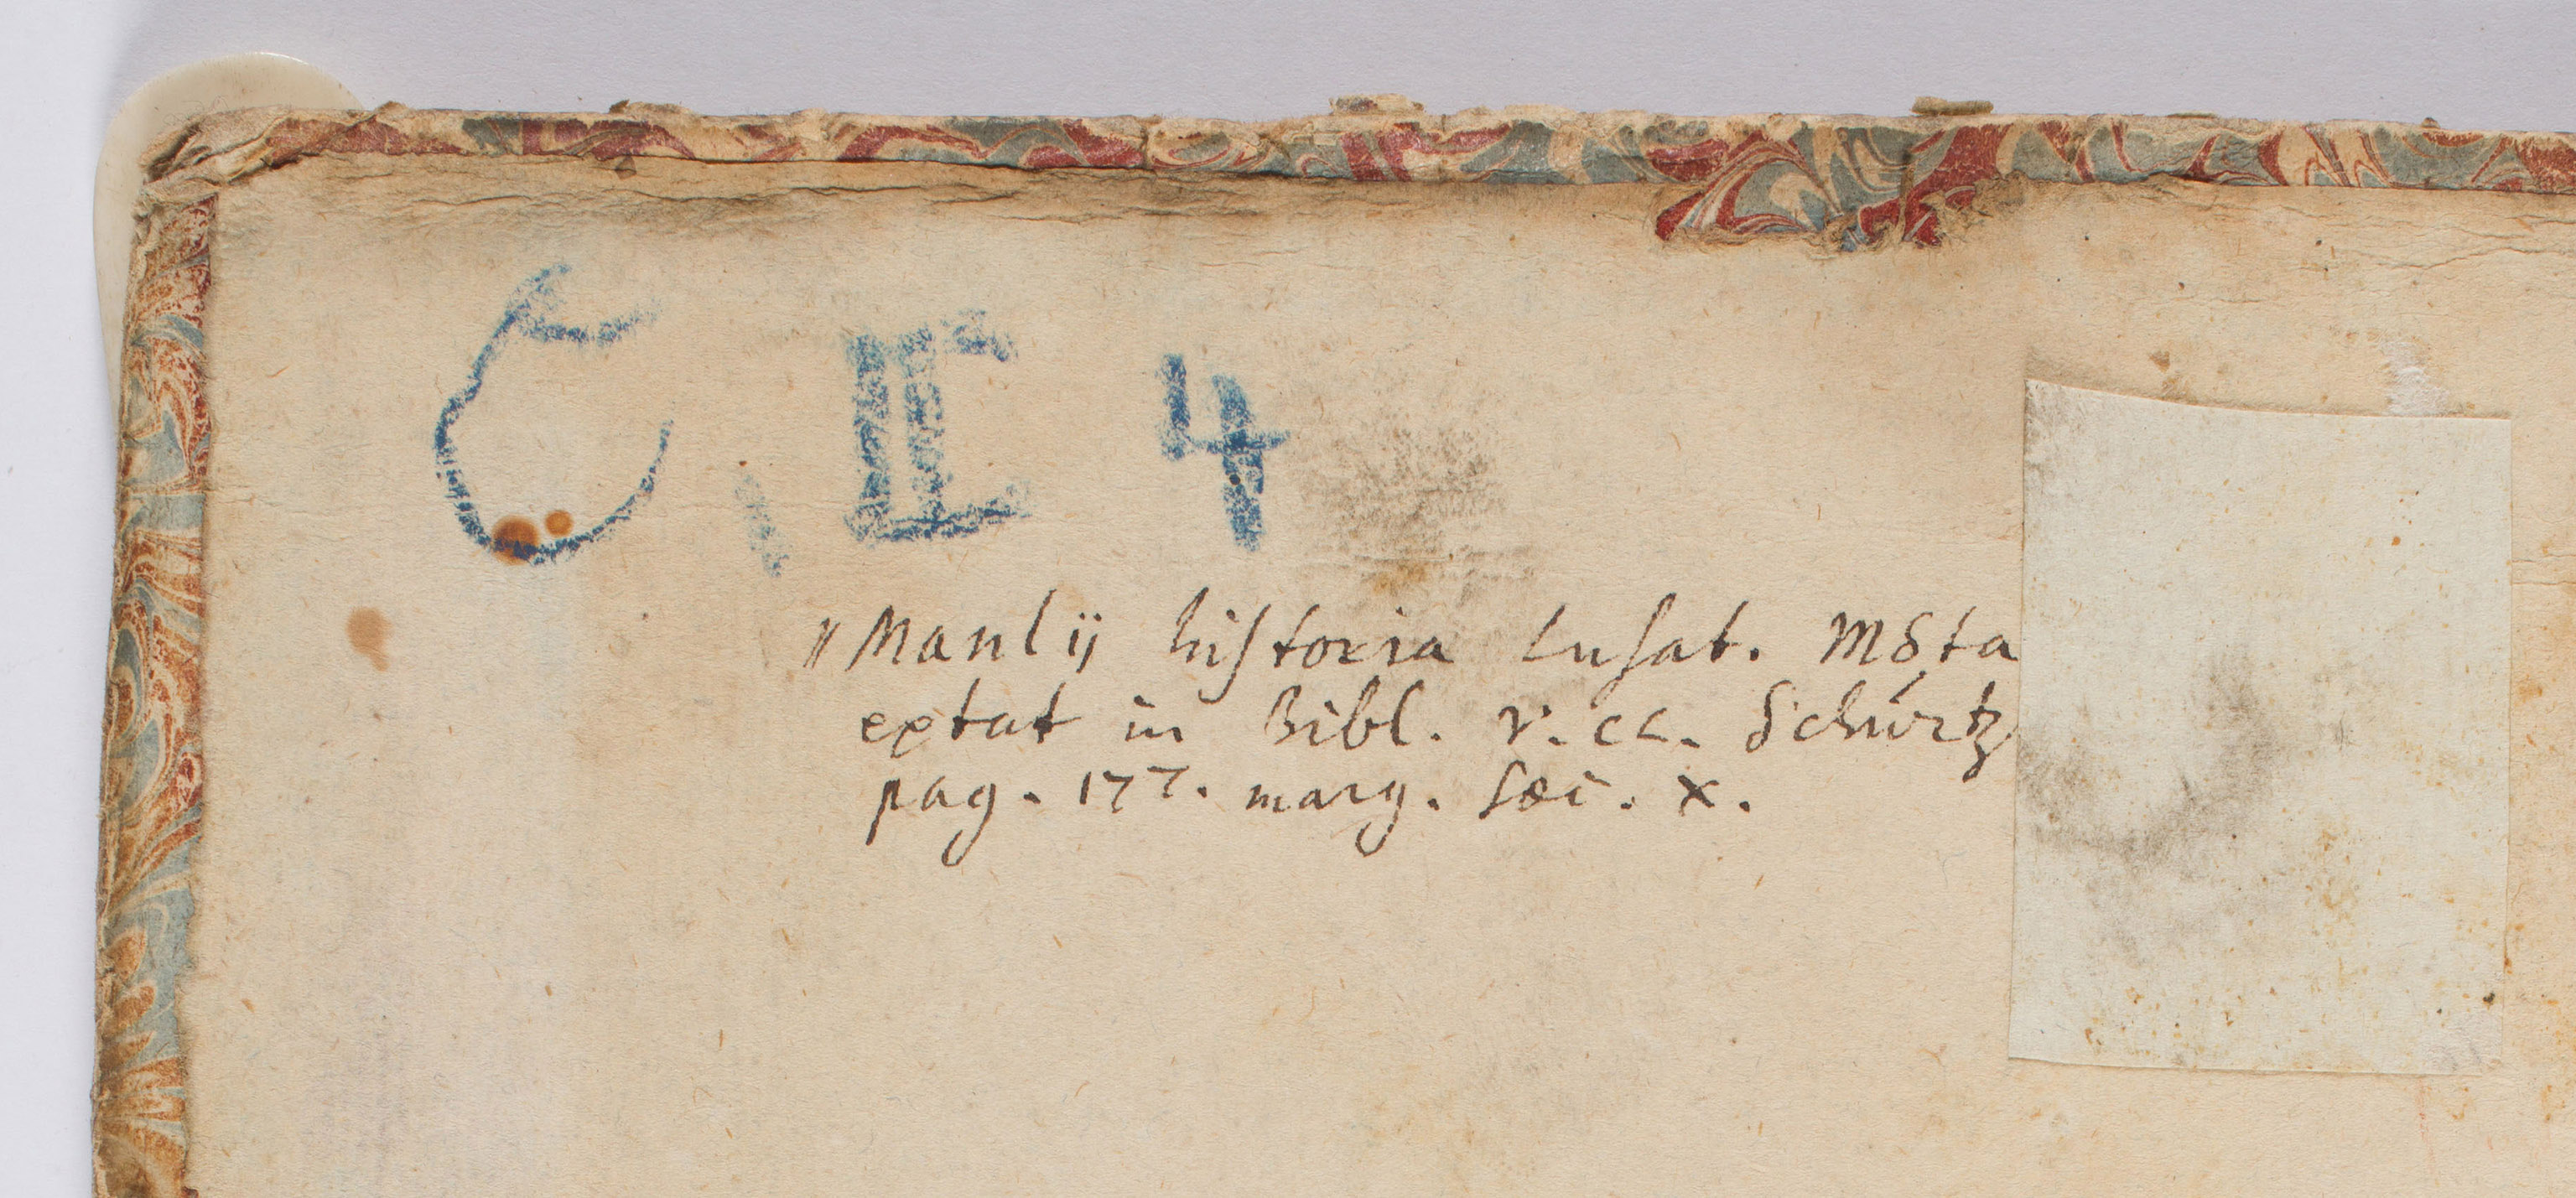 C, II 4
"Manlij historia Lusat. MSta
extat in Bibl. v. cl. Schúrtz
pag. 177. marg. Sec. X.